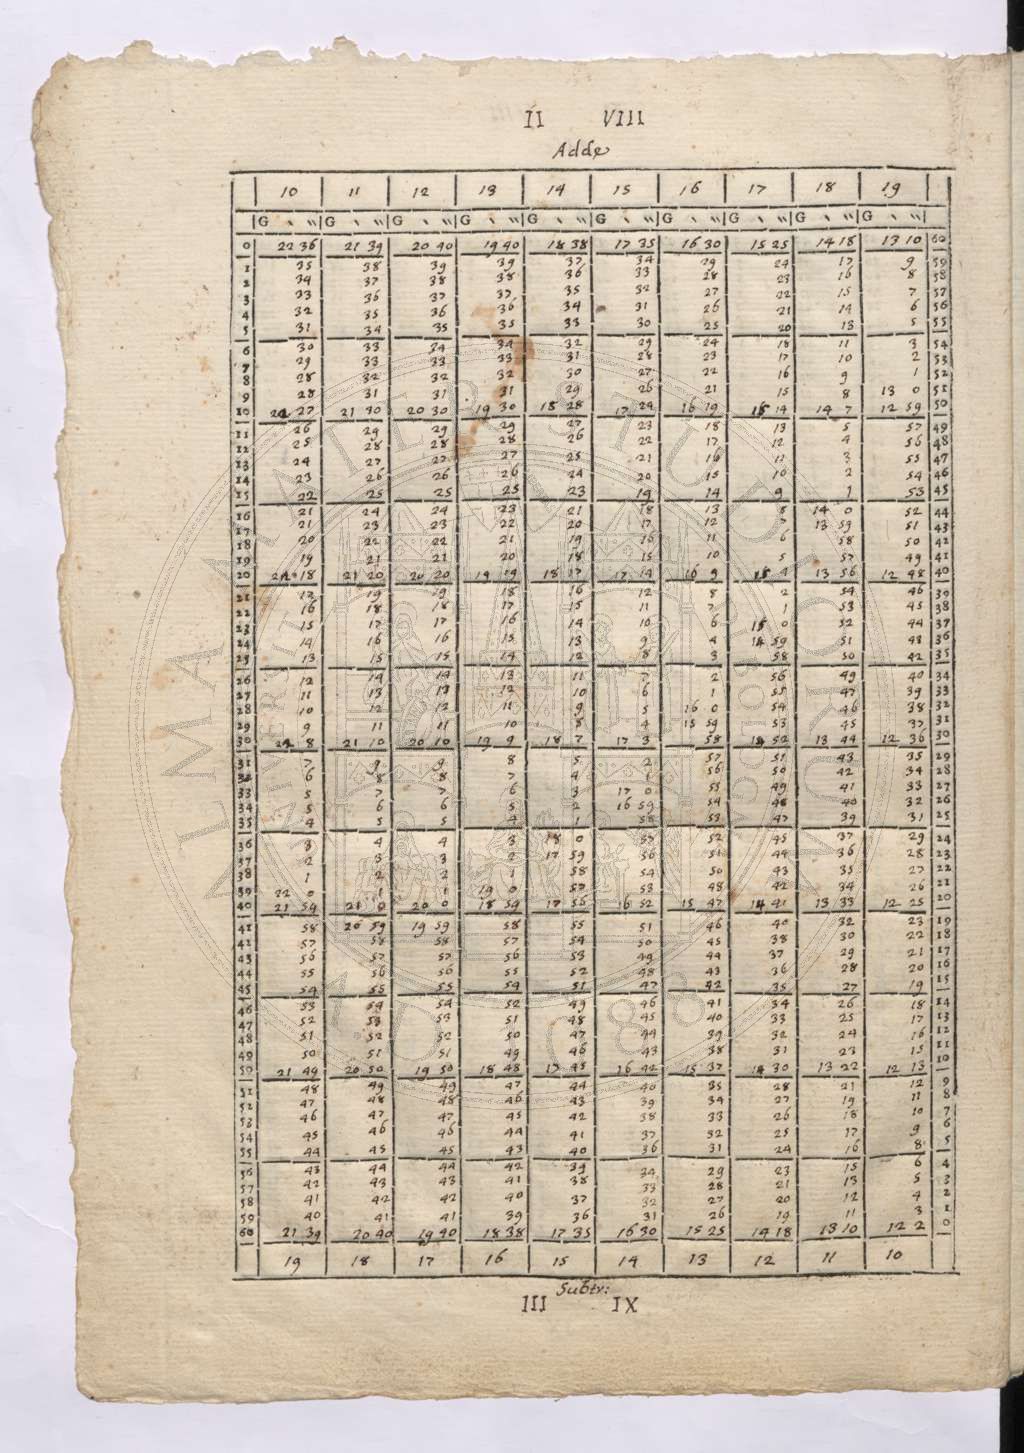 II VIII
Adde
10 11 12 13 14 15 16 17 18 19
G ` `` G ` `` G ` `` G ` `` G ` `` G ` `` G ` `` G ` `` G ` `` G ` ``
0 22 36 21 39 20 40 19 40 18 38 17 35 16 30 15 25 14 18 13 10 60
1 35 38 39 39 37 34 29 24 17 9 59
2 34 37 38 38 36 33 28 23 16 8 58
3 33 36 37 37 35 32 27 22 15 7 57
4 32 35 36 36 34 31 26 21 14 6 56
5 31 34 35 35 33 30 25 20 13 5 55
6 30 33 34 34 32 29 24 18 11 3 54
7 29 33 33 33 31 28 23 17 10 2 53
8 28 32 32 32 30 27 22 16 9 1 52
9 28 31 31 31 29 26 21 15 8 13 0 51
10 22 27 21 30 20 30 19 30 18 28 17 24 16 19 15 14 14 7 12 59 50
11 26 29 29 29 27 23 18 13 5 57 49
12 25 28 28 28 26 22 17 12 4 56 48
13 24 27 27 27 25 21 16 11 3 55 47
14 23 26 26 26 24 20 15 10 2 54 46
15 22 25 25 25 23 19 14 9 1 53 45
16 21 24 24 23 21 18 13 8 14 0 52 44
17 21 23 23 22 20 17 12 7 13 59 51 43
18 20 22 22 21 19 16 11 6 58 50 42
19 19 21 21 20 18 15 10 5 57 49 41
20 22 18 21 20 20 20 19 19 18 17 17 14 16 9 15 4 13 56 12 48 40
21 17 19 19 18 16 12 8 2 54 46 39
22 16 18 18 17 15 11 7 1 53 45 38
23 15 17 17 16 14 10 6 15 0 52 44 37
24 14 16 16 15 13 9 4 14 59 51 43 36
25 13 15 15 14 12 8 3 58 50 42 35
26 12 14 14 13 11 7 2 56 49 40 34
27 11 13 13 12 10 6 1 55 47 39 33
28 10 12 12 11 9 5 16 0 54 46 38 32
29 9 11 11 10 8 4 15 59 53 45 37 31
30 22 8 21 10 20 10 19 9 18 7 17 3 58 14 52 13 44 12 36 30
31 7 9 9 8 5 2 57 51 43 35 29
32 6 8 8 7 4 1 56 50 42 34 28
33 5 7 7 6 3 17 0 55 49 41 33 27
34 5 6 6 5 2 16 59 54 48 40 32 26
35 4 5 5 4 1 58 53 47 39 31 25
36 3 4 4 3 18 0 57 52 45 37 29 24
37 2 3 3 2 17 59 56 51 44 36 28 23
38 1 2 2 1 58 54 50 43 35 27 22
39 22 0 1 1 19 0 57 53 48 42 34 26 21
40 21 59 21 0 20 0 18 59 17 56 16 52 15 47 14 41 13 33 12 25 20
41 58 20 59 19 59 58 55 51 46 40 32 23 19
41 57 58 58 57 54 50 45 38 30 22 18
43 56 57 57 56 53 49 44 37 29 21 17
44 55 56 56 55 52 48 43 36 28 20 16
45 54 55 55 54 51 47 42 35 27 19 15
46 53 54 54 52 49 46 41 34 26 18 14
47 52 53 53 51 48 45 40 33 25 17 13
48 51 52 52 50 47 44 39 32 24 16 12
49 50 51 51 49 46 43 38 31 23 15 11
50 21 49 20 50 19 50 18 48 17 45 16 42 15 37 14 30 13 22 12 13 10
51 48 49 49 47 44 40 35 28 21 12 9
52 47 48 48 46 43 39 34 27 19 11 8
53 46 47 47 45 42 38 33 26 18 10 7
54 45 46 46 44 41 37 32 25 17 9 6
55 44 45 45 43 40 36 31 24 16 8 5
56 43 44 44 42 39 34 29 23 15 6 4
57 42 43 43 41 38 33 28 21 13 5 3
58 41 42 42 40 37 32 27 20 12 4 2
59 40 41 41 39 36 31 26 19 11 3 1
60 21 39 20 40 19 40 18 38 17 35 16 30 15 25 14 18 13 10 12 2 0
19 18 17 16 15 14 13 12 11 10
Subtr:
III IX